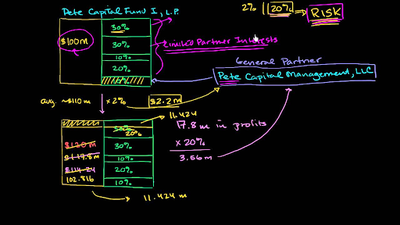 Pete Capital Fund I, L.P.
2% | 20% → RISK
$100m
30%
30%
10%
20%
Limited Partner Interests
General Partner
Pete Capital Management, LLC
avg. ~$110m × 2% $2.2m
11.424
20%
30%
10%
20%
10%
$120m
$117.8m
$114.24
102.816
17.8m in profits
× 20%
3.56m
11.424m